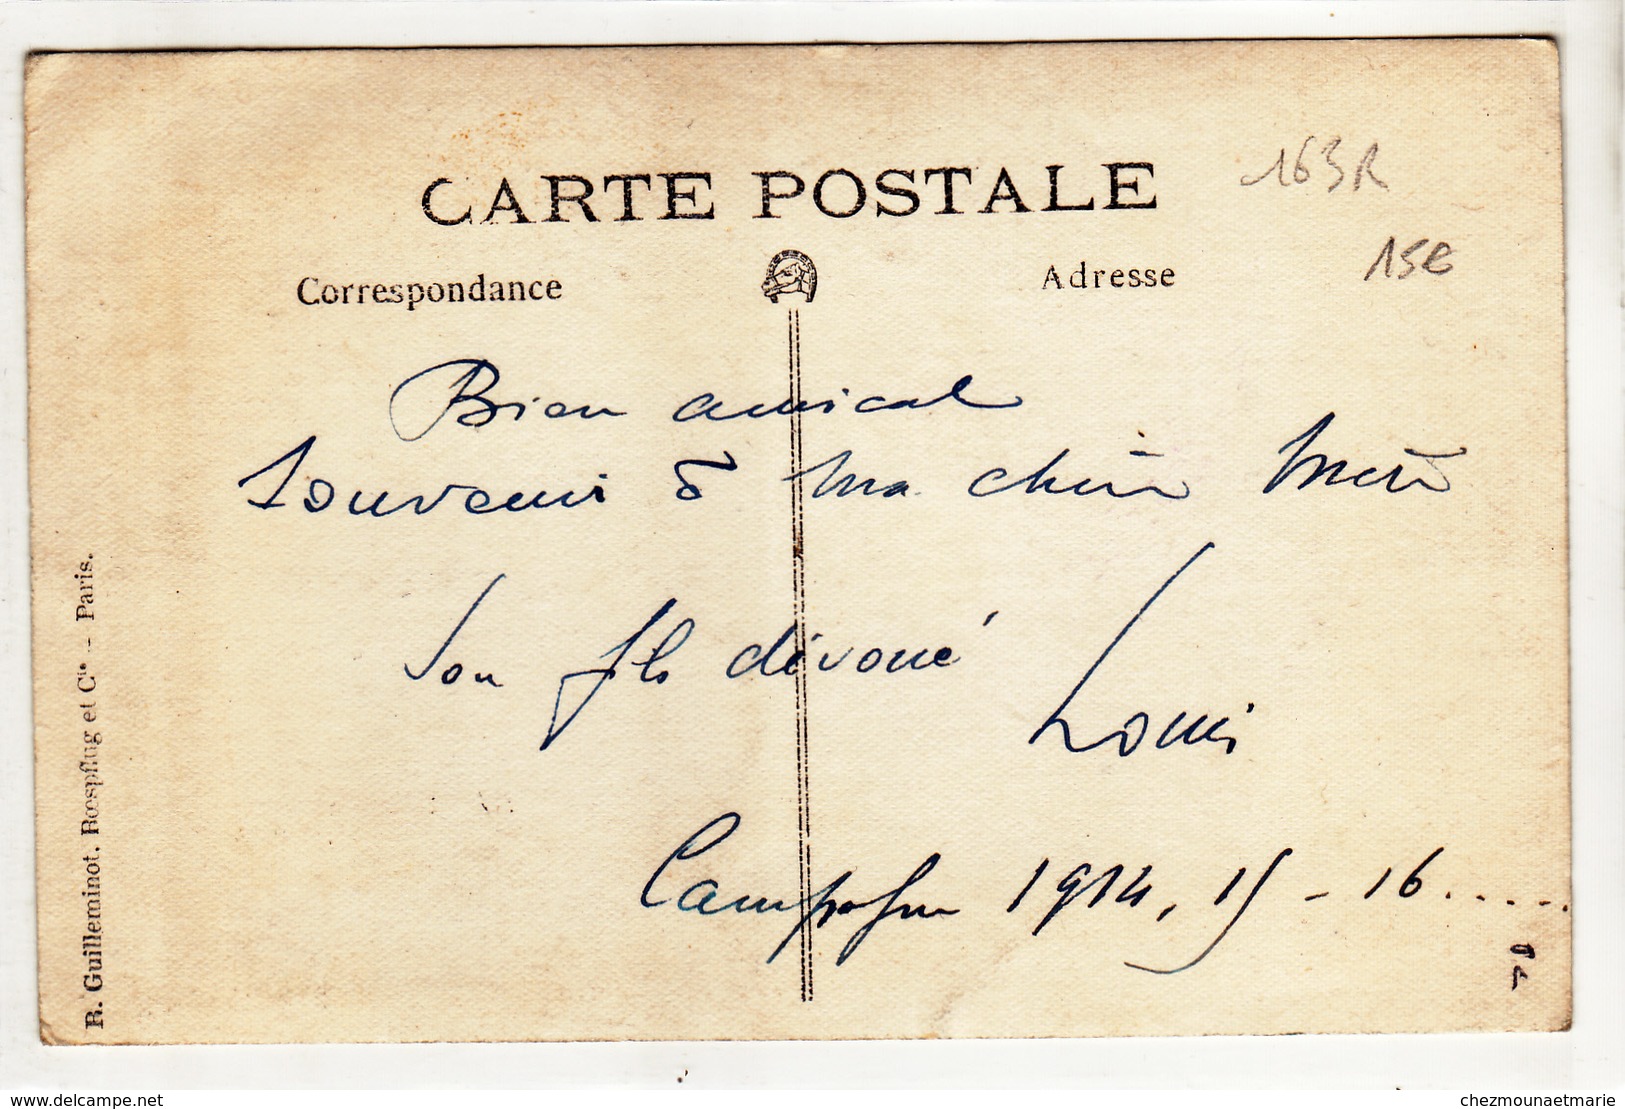 CARTE POSTALE
163R
Correspondance
Adresse
15€
Bien amical
Souvenir à ma chère Mère
Son fils dévoué
Louis
Campagne 1914, 15 - 16.....
R. Guilleminot, Rœspflug et Cie - Paris.
delcampe.net
chezmounaetmarie